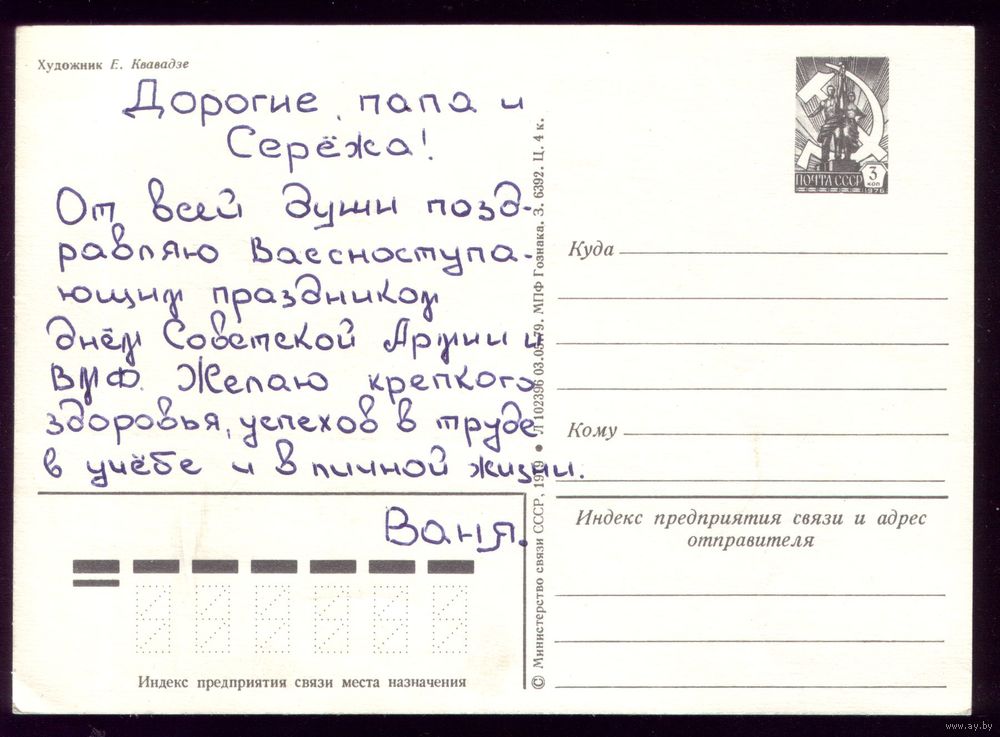 Художник Е. Квавадзе
Дорогие, папа и
Серёжа!
От всей души позд-
равляю Вассноступа-
ющим праздником
днём Советской Армии и
ВМФ. Желаю крепкого
здоровья, успехов в труде
в учёбе и в личной жизни.
Ваня.
Индекс предприятия связи места назначения
© Министерство связи СССР, 1979 ● Л 102396 03.05.79. МПФ Гознака. З. 6392. Ц. 4 к.
ПОЧТА СССР
3
КОП
1976
Куда
Кому
Индекс предприятия связи и адрес
отправителя
www.ay.by